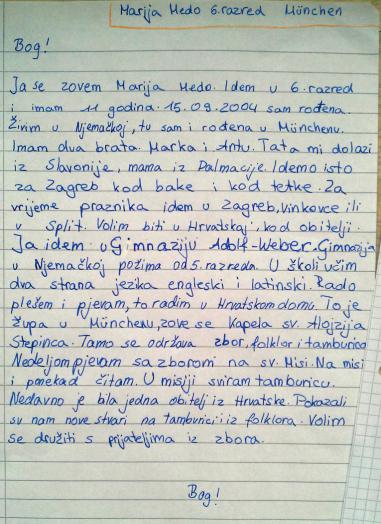 Marija Medo 6.razred München
Bog!
Ja se zovem Marija Medo. Idem u 6.razred
i imam 11 godina. 15.09.2004 sam rođena.
Živim u Njemačkoj, tu sam i rođena u Münchenu.
Imam dva brata. Marka i Antu. Tata mi dolazi
iz Slavonije, mama iz Dalmacije. Idemo isto
za Zagreb kod bake i kod tetke. Za
vrijeme praznika idem u Zagreb, Vinkovce ili
u Split. Volim biti u Hrvatskoj, kod obitelji.
Ja idem u Gimnaziju Adolf-Weber. Gimnazija
u Njemačkoj počima od 5. razreda. U školi učim
dva strana jezika engleski i latinski. Rado
plešem i pjevam, to radim u Hrvatskom domu. To je
župa u Münchenu, zove se Kapela sv. Alojzija
Stepinca. Tamo se održava zbor, folklor i tamburica
Nedeljom pjevam sa zborom na sv. Misi. Na misi
i ponekad čitam. U misiji sviram tamburicu.
Nedavno je bila jedna obitelj iz Hrvatske. Pokazali
su nam nove stvari na tamburici i iz folklora. Volim
se družiti s prijateljima iz zbora.
Bog!